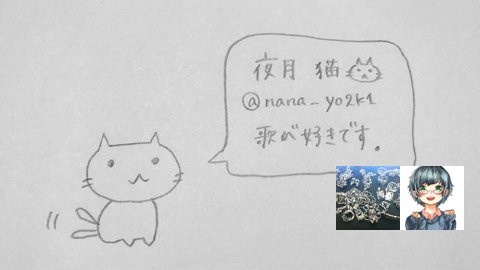 夜月 猫
@nana_yo2k1
歌が好きです。